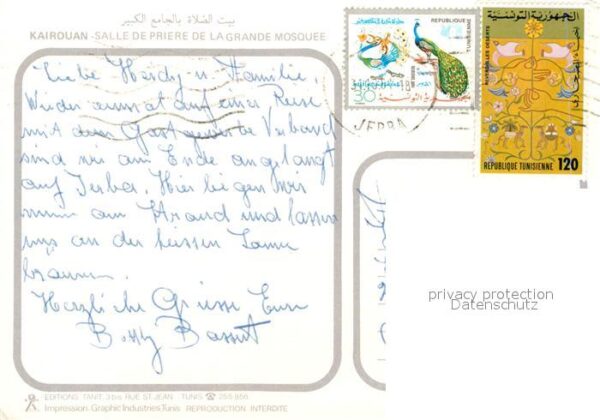 بيت الصلاة بالجامع الكبير
KAIROUAN - SALLE DE PRIERE DE LA GRANDE MOSQUEE
Liebe Heidy u. Familie
Wieder einmal auf einer Reise
mit dem Gastgewerbe Verband
sind wir am Ende angelangt
auf Jerba. Hier liegen wir
nun am Strand und lassen
uns an der heissen Sonne
braunen.
Herzliche Grüsse Eure
REPUBLIQUE
TUNISIENNE
JERBA
الجمهورية التونسية
REVERDIR LES DESERTS
REPUBLIQUE TUNISIENNE 120
privacy protection
Datenschutz
EDITIONS TANIT 3 bis RUE ST JEAN TUNIS ☎ 255 856
Impression: Graphic Industries Tunis REPRODUCTION INTERDITE